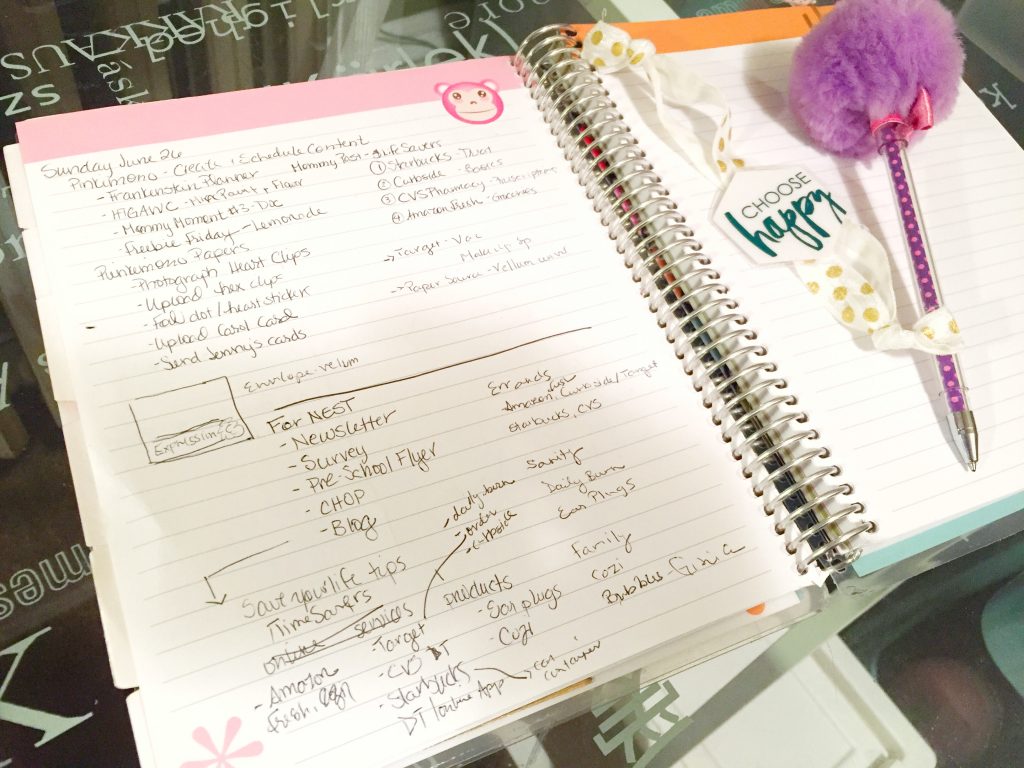 Sunday June 26
Pinkumono - Create & Schedule Content
- Frankenstein Planner
- HGAWC -
- Mommy Moment #3 - Doc
- Freebie Friday - Lemonade
Mommy Post - Life Savers
① Starbucks -
② Curbside - Basics
③ CVS Pharmacy - Prescriptions
④ Amazon Fresh - Groceries
Pinkumono Papers
- Photograph Heart Clips
- Upload hex clips
- Foil dot / heart sticker
- Upload Carol Card
- Send Jenny's cards
→ Target -
Make up
→ Paper Source - Vellum
Envelope - Vellum
Expressing
For NEST
- Newsletter
- Survey
- Pre-School Flyer
- CHOP
- Blog
Errands
Amazon, Curbside / Target
Starbucks, CVS
Sanity
Daily Burn
Ear Plugs
Family
Cozi
Bubbles
- daily burn
- order
- curbside
Save your life tips
Time Savers
services
- Amazon
fresh,
- Target
- CVS
- Starbucks
DT App
products
- Ear plugs
- Cozi
CHOOSE
happy